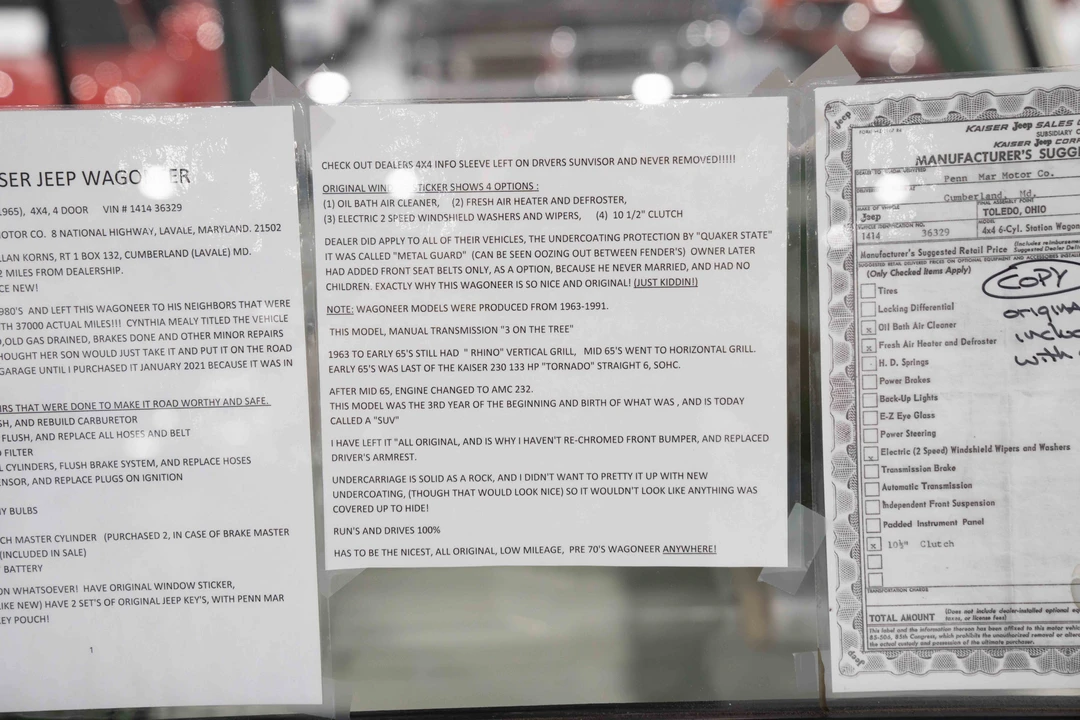 SER JEEP WAGONEER
1965), 4X4, 4 DOOR VIN # 1414 36329
OTOR CO. 8 NATIONAL HIGHWAY, LAVALE, MARYLAND. 21502
LLAN KORNS, RT 1 BOX 132, CUMBERLAND (LAVALE) MD.
2 MILES FROM DEALERSHIP.
CE NEW!
980'S AND LEFT THIS WAGONEER TO HIS NEIGHBORS THAT WERE
TH 37000 ACTUAL MILES!!! CYNTHIA MEALY TITLED THE VEHICLE
,OLD GAS DRAINED, BRAKES DONE AND OTHER MINOR REPAIRS
HOUGHT HER SON WOULD JUST TAKE IT AND PUT IT ON THE ROAD
GARAGE UNTIL I PURCHASED IT JANUARY 2021 BECAUSE IT WAS IN
IRS THAT WERE DONE TO MAKE IT ROAD WORTHY AND SAFE.
SH, AND REBUILD CARBURETOR
FLUSH, AND REPLACE ALL HOSES AND BELT
FILTER
L CYLINDERS, FLUSH BRAKE SYSTEM, AND REPLACE HOSES
ENSOR, AND REPLACE PLUGS ON IGNITION
Y BULBS
CH MASTER CYLINDER (PURCHASED 2, IN CASE OF BRAKE MASTER
(INCLUDED IN SALE)
BATTERY
ON WHATSOEVER! HAVE ORIGINAL WINDOW STICKER,
LIKE NEW) HAVE 2 SET'S OF ORIGINAL JEEP KEY'S, WITH PENN MAR
EY POUCH!
1
CHECK OUT DEALERS 4X4 INFO SLEEVE LEFT ON DRVERS SUNVISOR AND NEVER REMOVED!!!!!
ORIGINAL WINDOW STICKER SHOWS 4 OPTIONS :
(1) OIL BATH AIR CLEANER, (2) FRESH AIR HEATER AND DEFROSTER,
(3) ELECTRIC 2 SPEED WINDSHIELD WASHERS AND WIPERS, (4) 10 1/2" CLUTCH
DEALER DID APPLY TO ALL OF THEIR VEHICLES, THE UNDERCOATING PROTECTION BY "QUAKER STATE"
IT WAS CALLED "METAL GUARD" (CAN BE SEEN OOZING OUT BETWEEN FENDER'S) OWNER LATER
HAD ADDED FRONT SEAT BELTS ONLY, AS A OPTION, BECAUSE HE NEVER MARRIED, AND HAD NO
CHILDREN. EXACTLY WHY THIS WAGONEER IS SO NICE AND ORIGINAL! (JUST KIDDIN!)
NOTE: WAGONEER MODELS WERE PRODUCED FROM 1963-1991.
THIS MODEL, MANUAL TRANSMISSION "3 ON THE TREE"
1963 TO EARLY 65'S STILL HAD " RHINO" VERTICAL GRILL, MID 65'S WENT TO HORIZONTAL GRILL.
EARLY 65'S WAS LAST OF THE KAISER 230 133 HP "TORNADO" STRAIGHT 6, SOHC.
AFTER MID 65, ENGINE CHANGED TO AMC 232.
THIS MODEL WAS THE 3RD YEAR OF THE BEGINNING AND BIRTH OF WHAT WAS , AND IS TODAY
CALLED A "SUV"
I HAVE LEFT IT "ALL ORIGINAL, AND IS WHY I HAVEN'T RE-CHROMED FRONT BUMPER, AND REPLACED
DRIVER'S ARMREST.
UNDERCARRIAGE IS SOLID AS A ROCK, AND I DIDN'T WANT TO PRETTY IT UP WITH NEW
UNDERCOATING, (THOUGH THAT WOULD LOOK NICE) SO IT WOULDN'T LOOK LIKE ANYTHING WAS
COVERED UP TO HIDE!
RUN'S AND DRIVES 100%
HAS TO BE THE NICEST, ALL ORIGINAL, LOW MILEAGE, PRE 70'S WAGONEER ANYWHERE!
Jeep
KAISER Jeep SALES
SUBSIDIARY
KAISER Jeep COR
MANUFACTURER'S SUGG
Penn Mar Motor Co.
Cumberland, Md.
MAKE OF VEHICLE
Jeep
FINAL ASSEMBLY POINT
TOLEDO, OHIO
1414 36329
MODEL
4x4 6-Cyl. Station Wagon
Manufacturer's Suggested Retail Price
(Only Checked Items Apply)
Tires
Locking Differential
x Oil Bath Air Cleaner
x Fresh Air Heater and Defroster
H. D. Springs
Power Brakes
Back-Up Lights
E-Z Eye Glass
Power Steering
x Electric (2 Speed) Windshield Wipers and Washers
Transmission Brake
Automatic Transmission
Independent Front Suspension
Padded Instrument Panel
x 10½" Clutch
COPY
origina
inclu
with
TRANSPORTATION CHARGE
TOTAL AMOUNT (Does not include dealer-installed optional eq
taxes, or license fees)
This label and the information thereon has been affixed to this motor vehic
85-506, 85th Congress, which prohibits the unauthorized removal or altera
the actual custody and possession of the ultimate purchaser.
Jeep